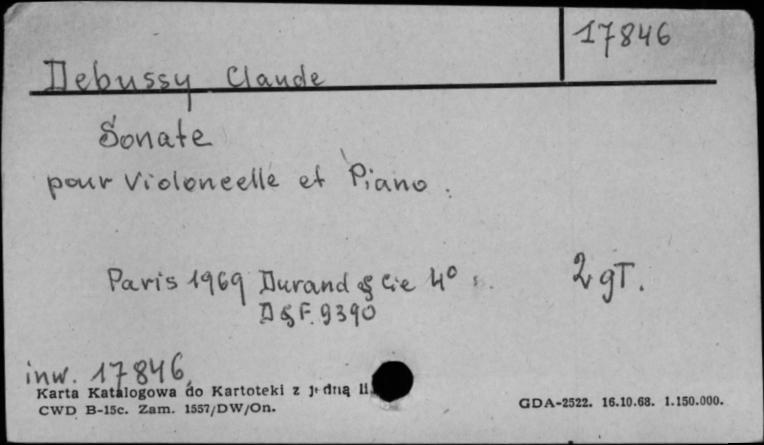 17846
Debussy Claude
Sonate
pour Violoncelle et Piano.
Paris 1969 Durand & Cie 4° 2 gT.
D & F. 9390
inw. 17846
Karta Katalogowa do Kartoteki z jedną
CWD B-15c. Zam. 1557/DW/On.
GDA-2522. 16.10.68. 1.150.000.